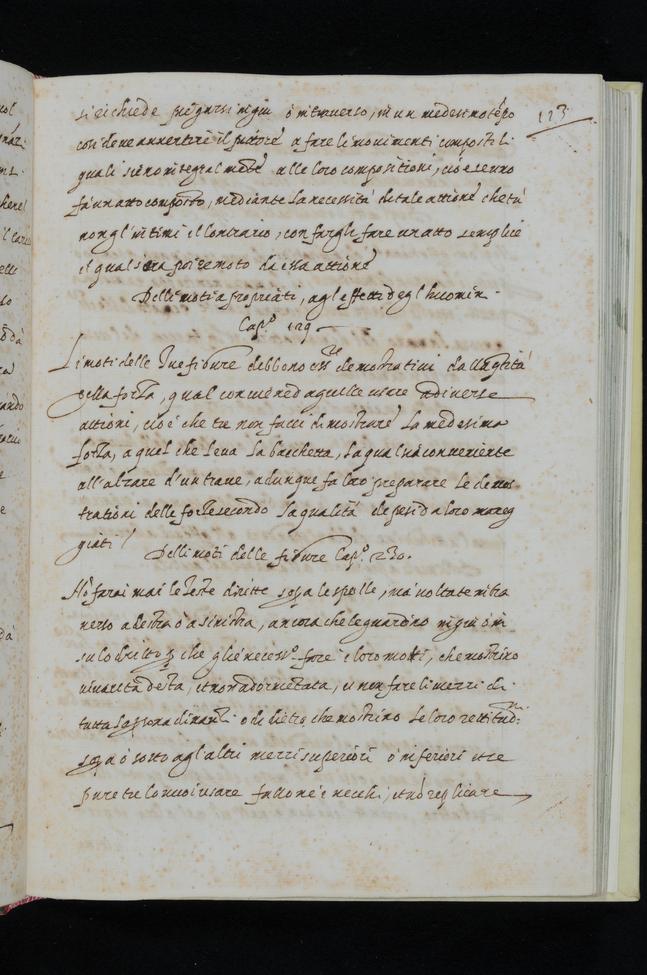 si richiede piegarsi in giu o in traverso, in un medesimo tẽpo
113
cosi deve avvertire il pittore a fare li movimenti composti li
quali sieno integralmẽte alle loro compositioni, cioè se uno
fa un atto composto, mediante la necessità de tale attione che tu
non gl'intimi il contrario, con fargli fare un atto semplice
il qual sera poi remoto da essa attione
Delli moti apropriati, agl'effetti degl'huomin.
Cap.º 229
Li moti delle tue figure debbono ess.re demostrativi della q̃tità
della forza, qual conviene da quelle usare a diverse
attioni, cioè che tu non facci dimostrare la medesima
forza, a quel che leva la bacchetta, la qual sia conveniente
all'alzare d'un trave, adunque fa loro preparare le demos
trationi delle forze secondo la qualità de pesi da loro maneg
giati /
Delli moti delle figure Cap.º 230.
Nõ farai mai le teste diritte sopa le spalle, ma voltate in tra
verso a destra ò a sinistra, ancora che le guardino in giu ò in
su lo dritto p che gli è necess.º fare i loro motti, che mostrino
vivacità desta, et non adormentata, et non fare li mezzi di
tutta la psona dinanti o di dietro che mostrino le loro rettitud:ni
sopa ò sotto agl'altri mezzi superiori ò inferiori et se
pure tu lo vuoi usare fallo ne i vecchi, et nõ replicare